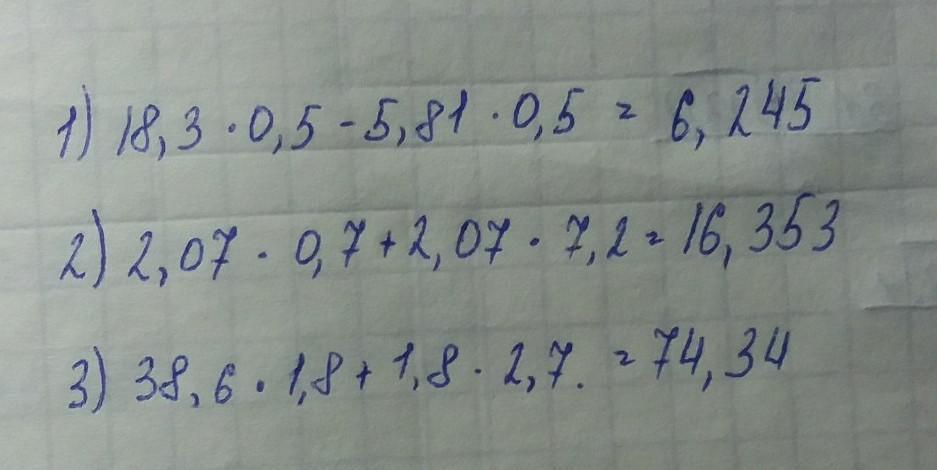 1) 18,3 · 0,5 - 5,81 · 0,5 = 6,245
2) 2,07 · 0,7 + 2,07 · 7,2 = 16,353
3) 38,6 · 1,8 + 1,8 · 2,7. = 74,34